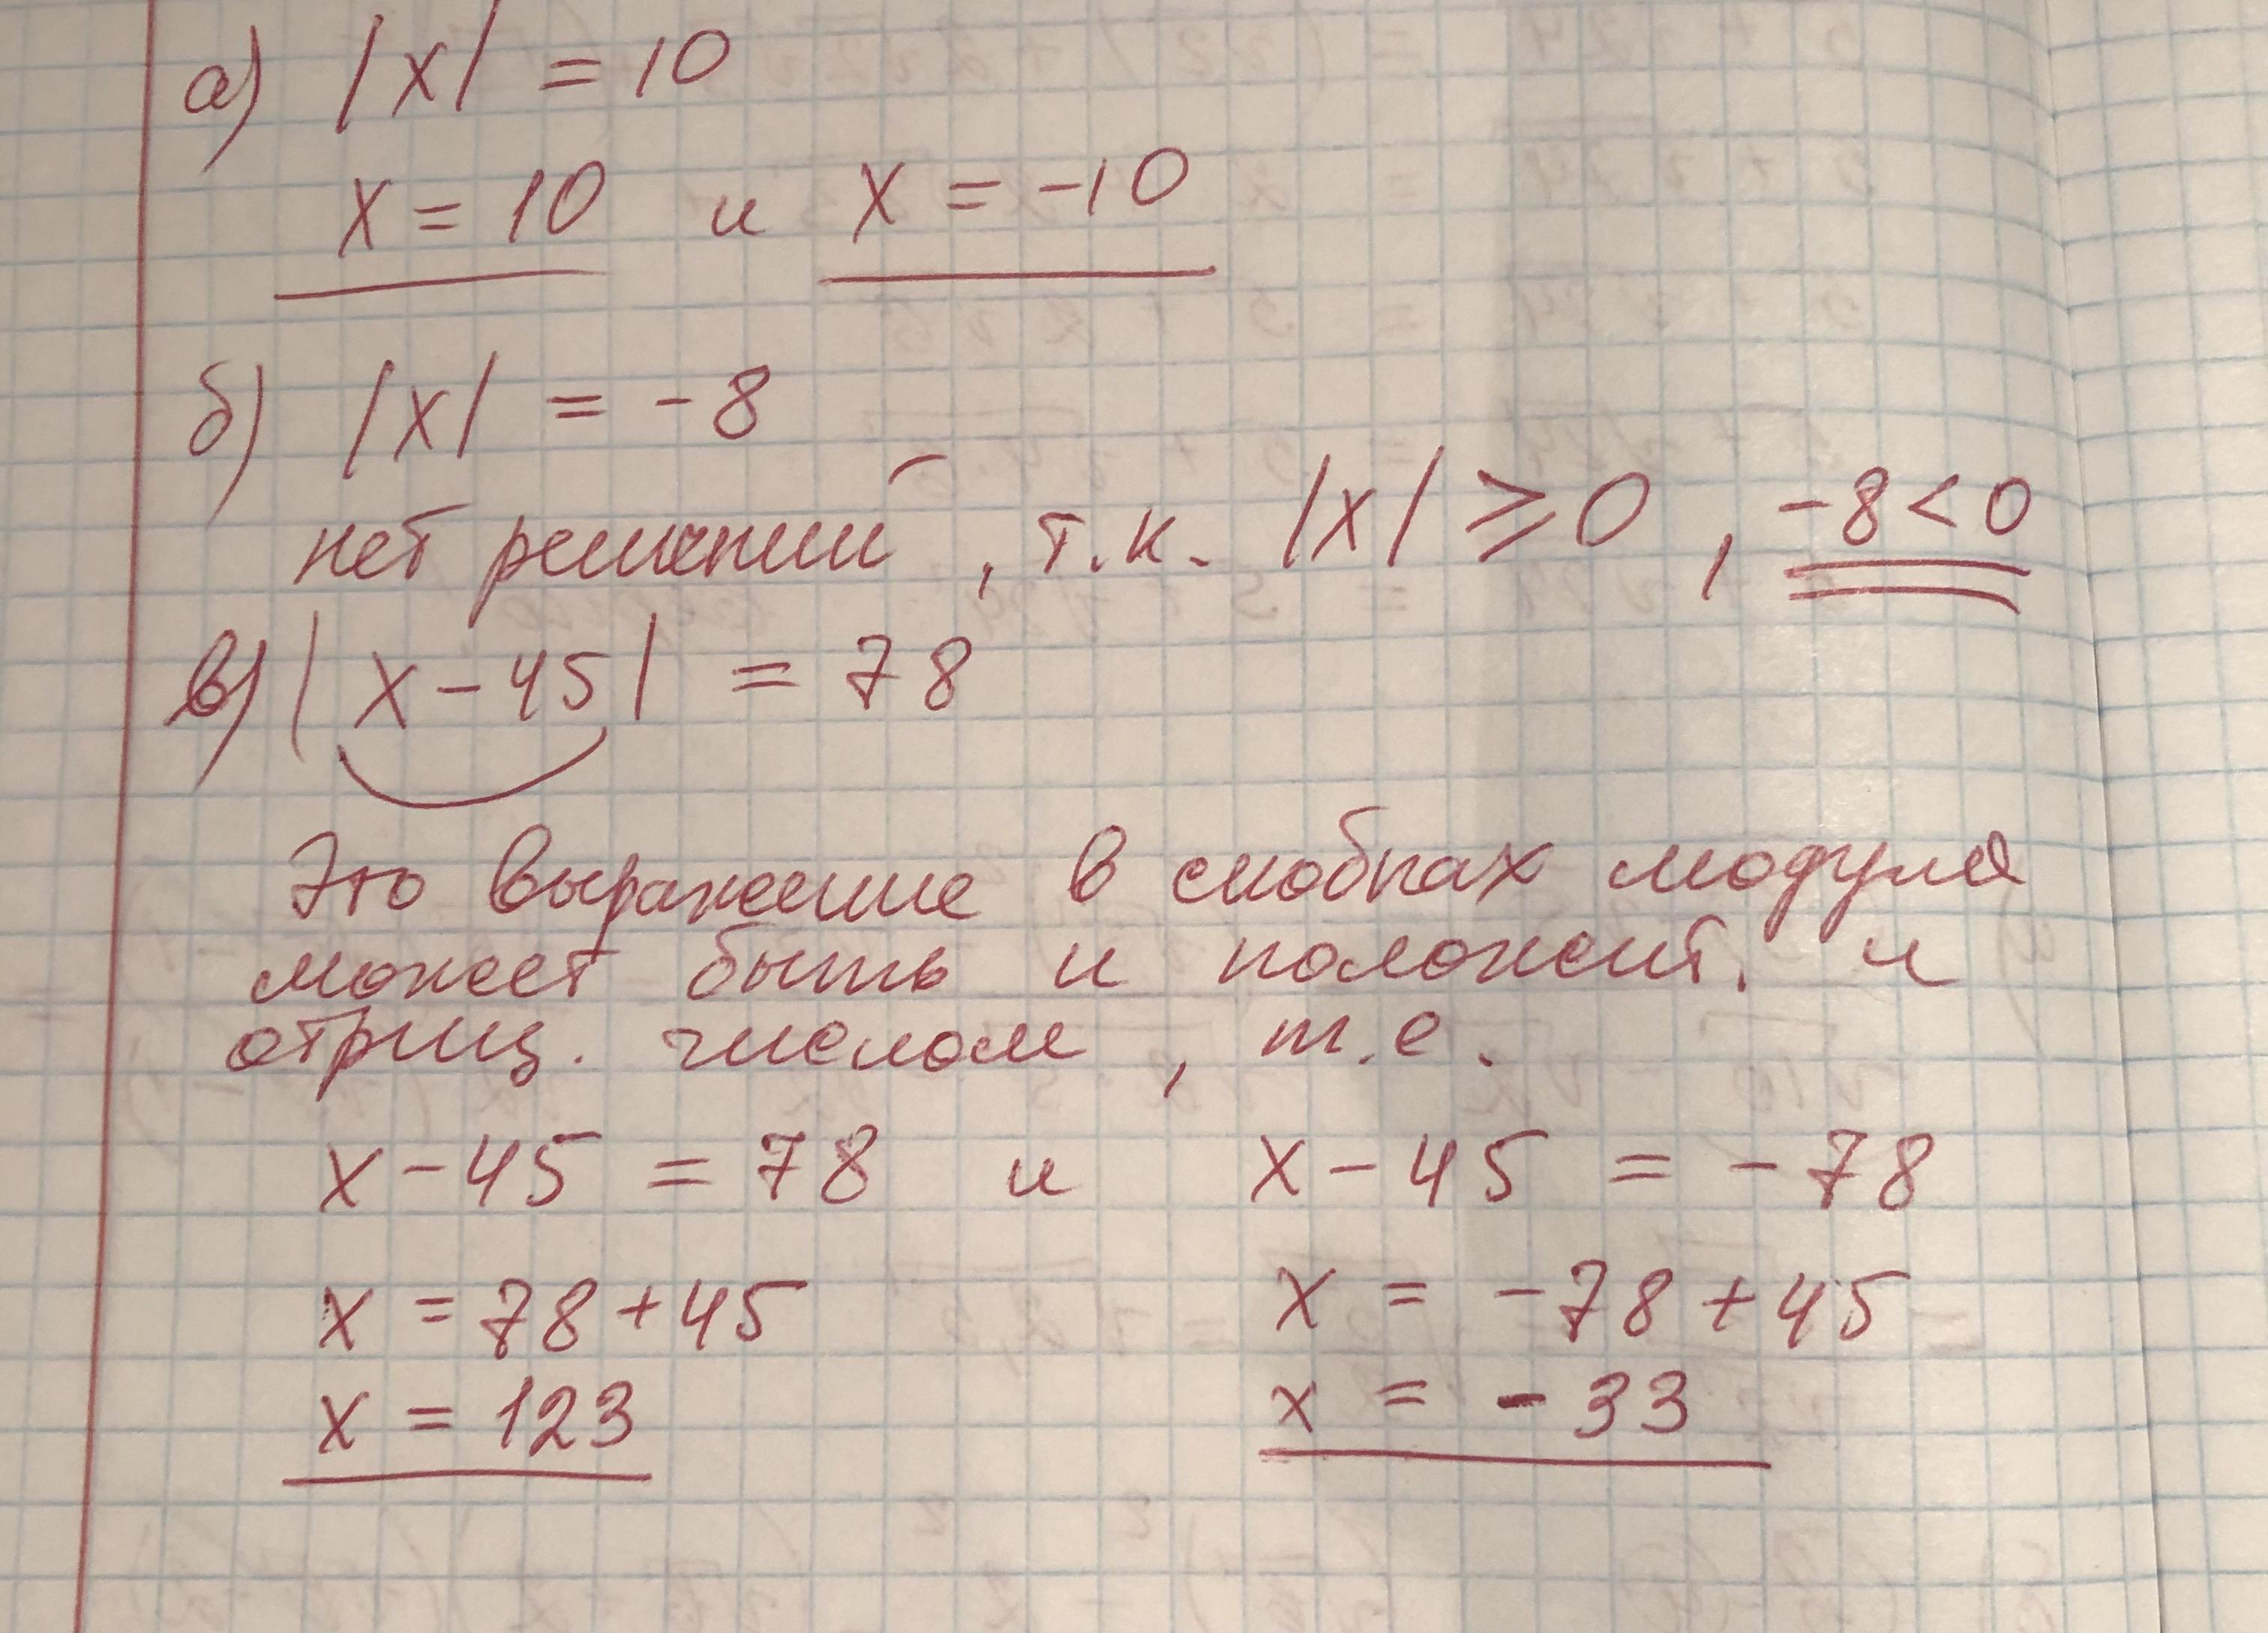 а) |x| = 10
x = 10 и x = -10
б) |x| = -8
нет решений, т.к. |x| ⩾ 0, -8 < 0
в) |x - 45| = 78
Это выражение в скобках модуля
может быть и положит. и
отриц. числом, т.е.
x - 45 = 78 и x - 45 = -78
x = 78 + 45 x = -78 + 45
x = 123 x = -33